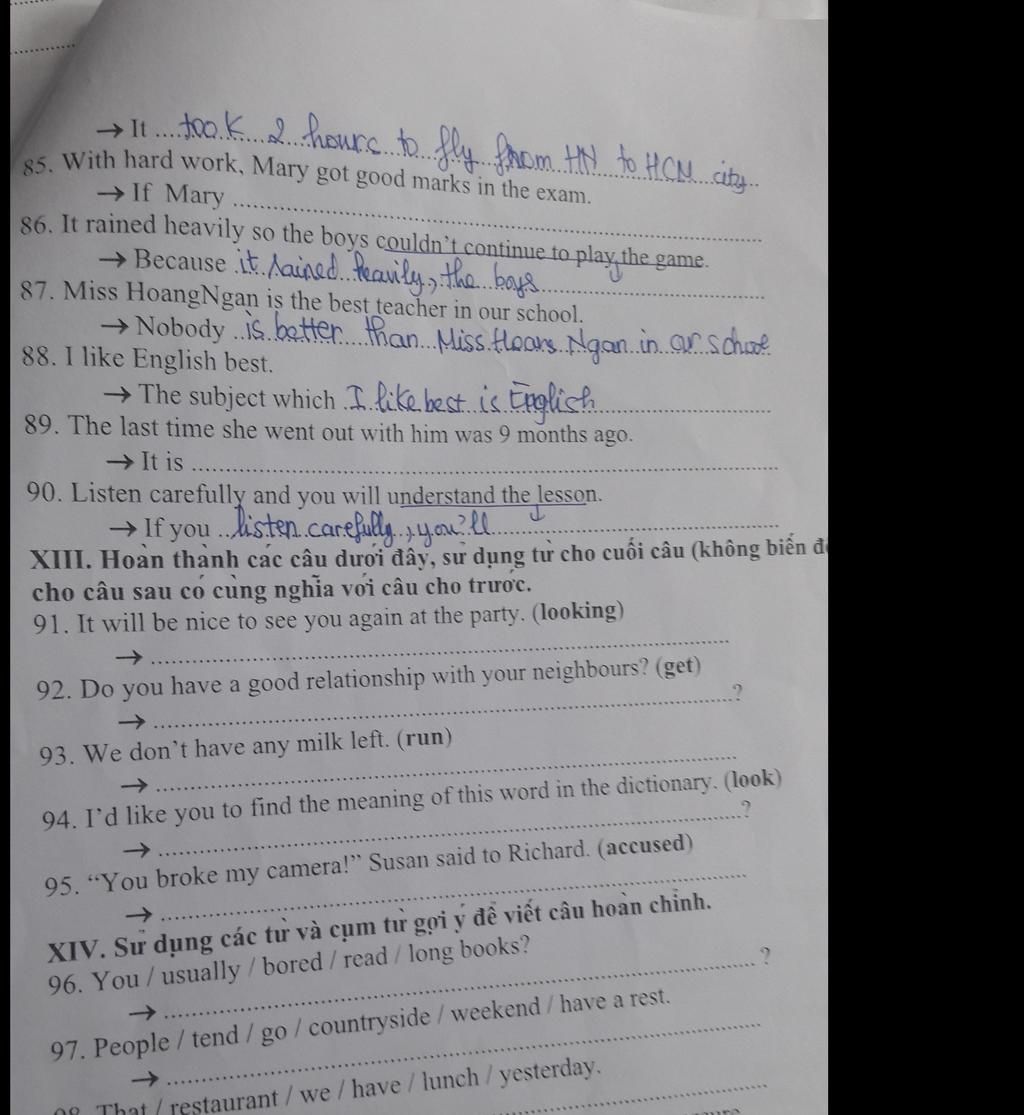 → It ....took 2 hours to fly from HN to HCM city..
85. With hard work, Mary got good marks in the exam.
→ If Mary ........................
86. It rained heavily so the boys couldn't continue to play the game.
→ Because it rained heavily, the boys ........................
87. Miss HoangNgan is the best teacher in our school.
→ Nobody ..is better than Miss Hoang Ngan in our school
88. I like English best.
→ The subject which I like best is English ........................
89. The last time she went out with him was 9 months ago.
→ It is ........................
90. Listen carefully and you will understand the lesson.
→ If you ..listen carefully, you'll ........................
XIII. Hoàn thành các câu dưới đây, sử dụng từ cho cuối câu (không biến
cho câu sau có cùng nghĩa với câu cho trước.
91. It will be nice to see you again at the party. (looking)
→ ........................
92. Do you have a good relationship with your neighbours? (get)
→ ........................?
93. We don't have any milk left. (run)
→ ........................
94. I'd like you to find the meaning of this word in the dictionary. (look)
→ ........................?
95. “You broke my camera!” Susan said to Richard. (accused)
→ ........................
XIV. Sử dụng các từ và cụm từ gợi ý để viết câu hoàn chỉnh.
96. You / usually / bored / read / long books?
→ ........................ ?
97. People / tend / go / countryside / weekend / have a rest.
→ ........................
98. That / restaurant / we / have / lunch / yesterday.